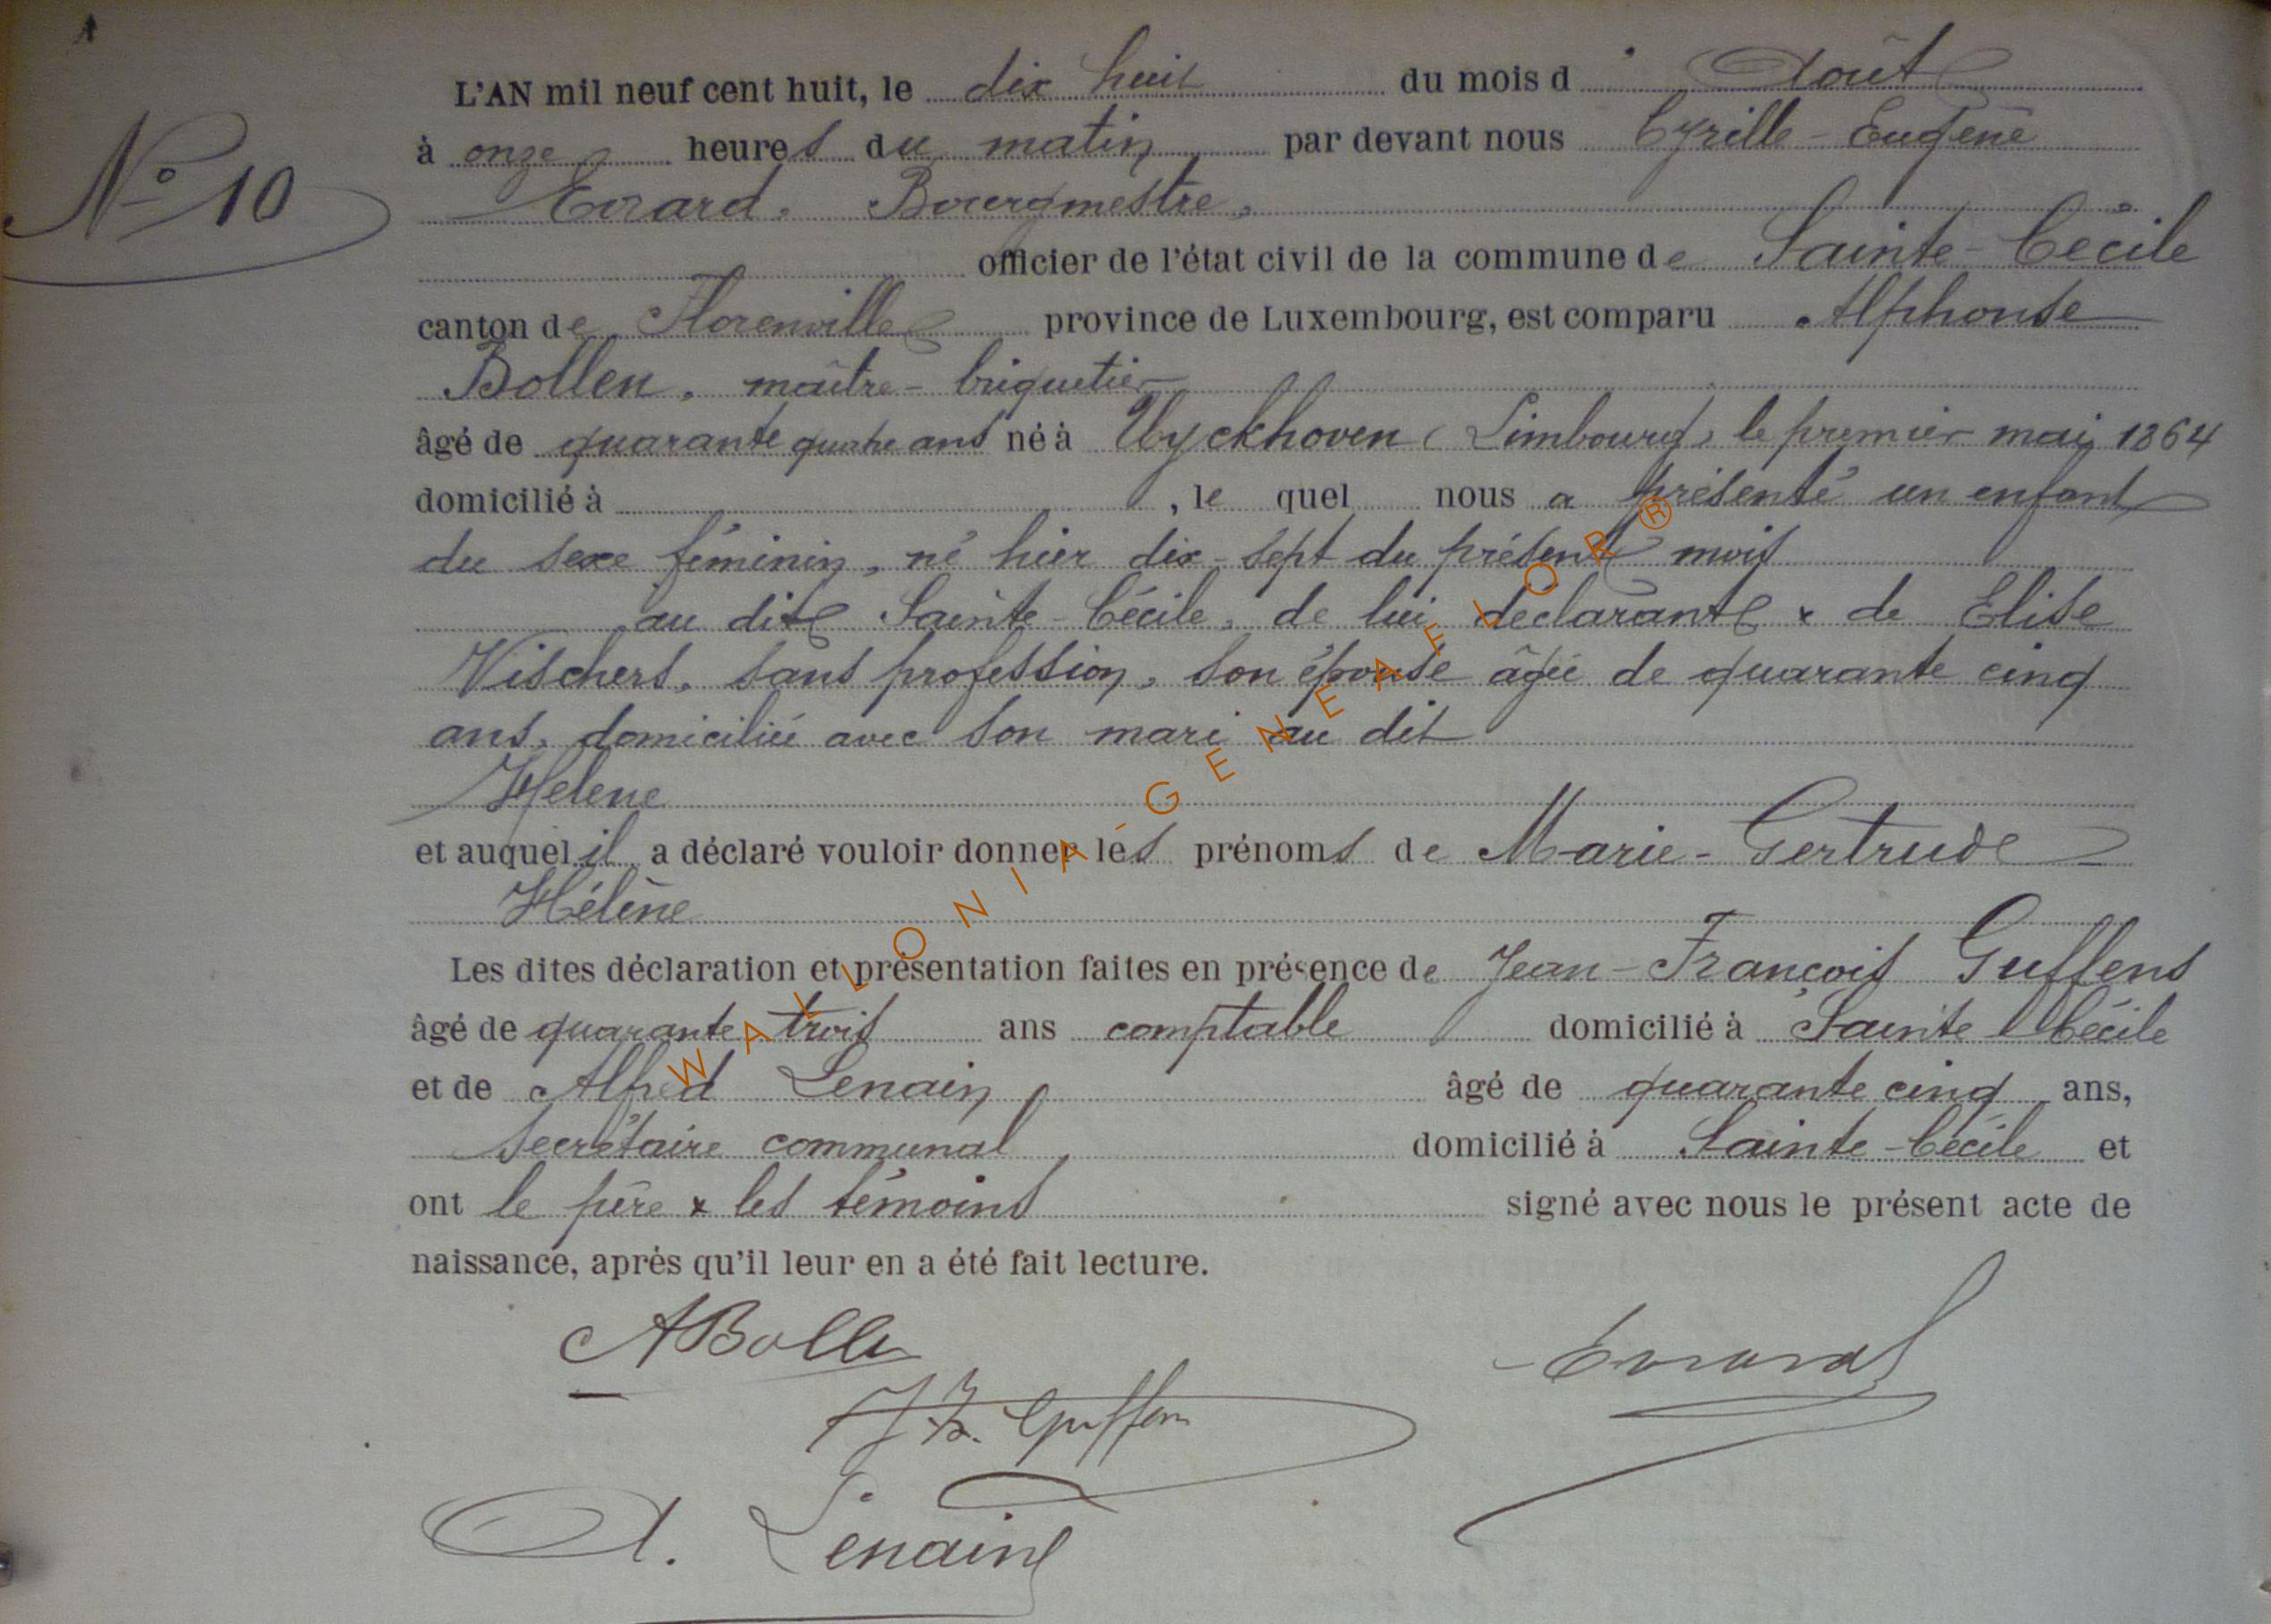 L'AN mil neuf cent huit, le dix huit du mois d'Août
N° 10
à onze heures du matin par devant nous Cyrille-Eugène
Evrard, Bourgmestre,
officier de l'état civil de la commune de Sainte-Cécile
canton de Florenville province de Luxembourg, est comparu Alphonse
Bollen, maître-briquetier
âgé de quarante quatre ans né à Uyckhoven (Limbourg) le premier mai 1864
domicilié à , le quel nous a présenté un enfant
du sexe féminin, né hier dix-sept du présent mois
au dit Sainte-Cécile, de lui déclarant & de Elise
Vischers, sans profession, son épouse âgée de quarante cinq
ans, domiciliée avec son mari au dit
Helene
et auquel il a déclaré vouloir donner les prénoms de Marie-Gertrude
Hélène
Les dites déclaration et présentation faites en présence de Jean-François Guffens
âgé de quarante trois ans comptable domicilié à Sainte Cécile
et de Alfred Lenain, âgé de quarante cinq ans,
secrétaire communal domicilié à Sainte-Cécile et
ont le père & les témoins signé avec nous le présent acte de
naissance, après qu'il leur en a été fait lecture.
ABollen
Evrard
JF. Guffens
A. Lenain
WALLONIA GENEAFLOR ®